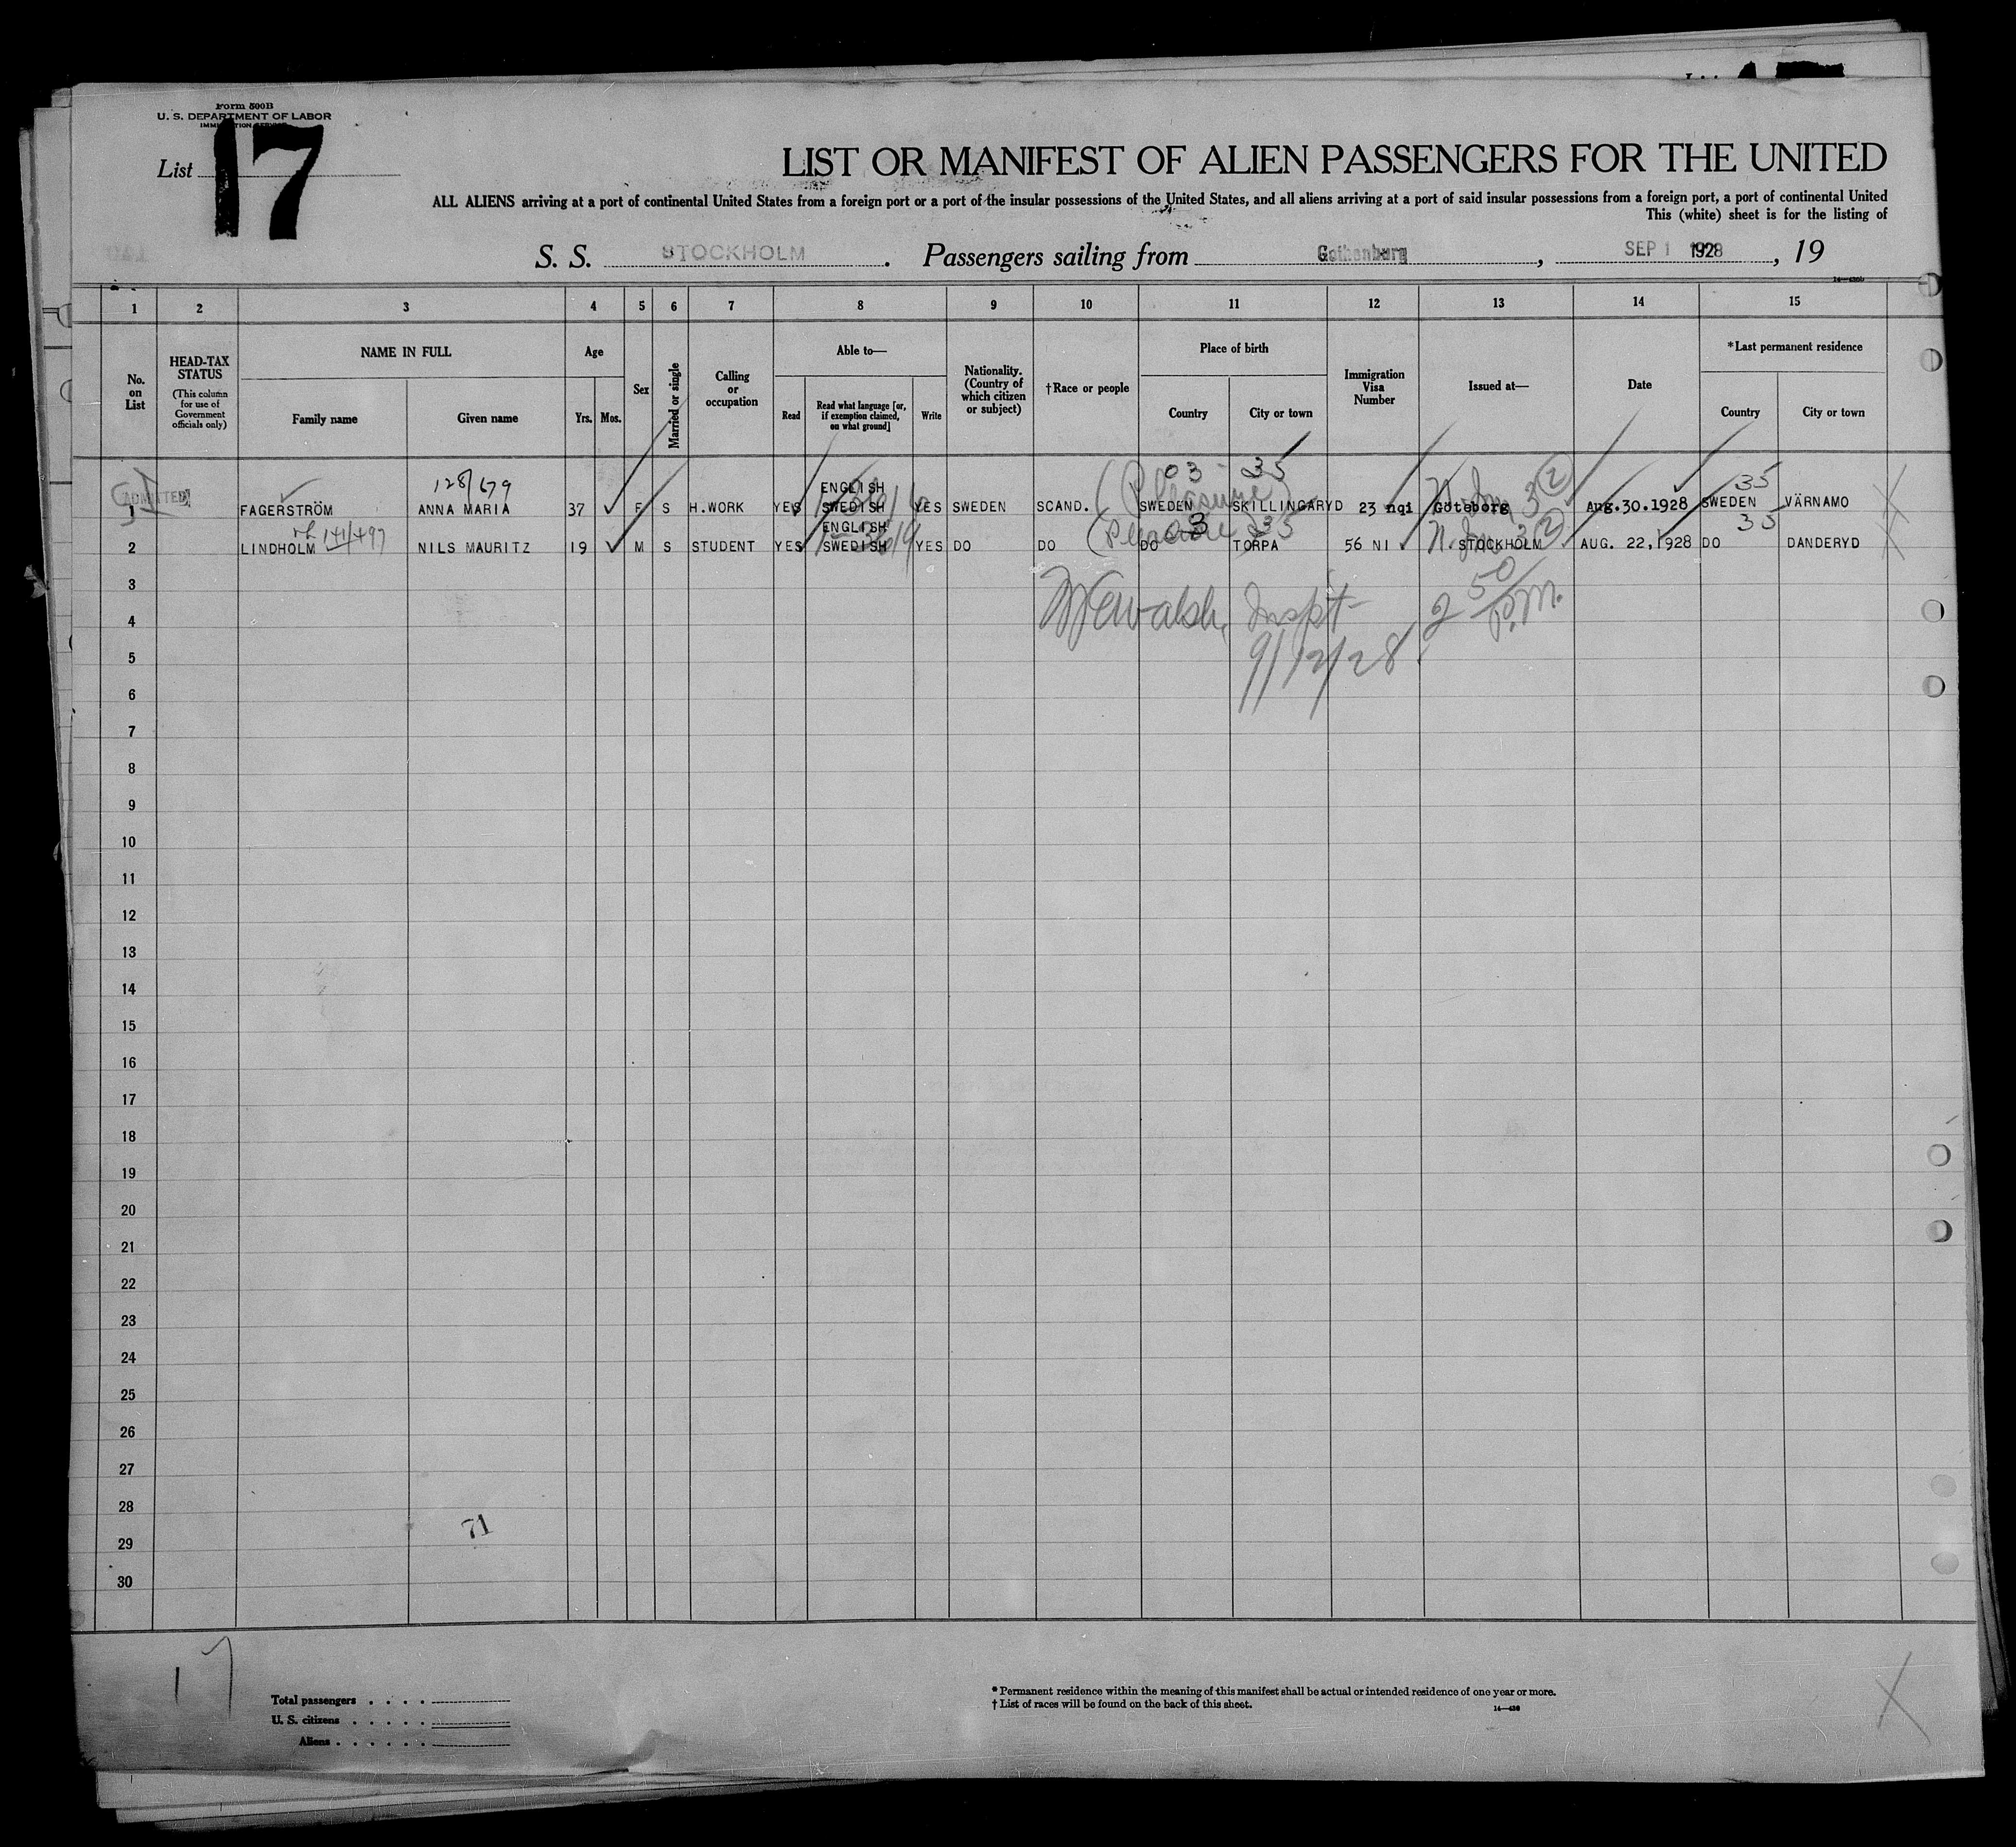 Form 500B
U. S. DEPARTMENT OF LABOR
IMMIGRATION SERVICE
List 17
LIST OR MANIFEST OF ALIEN PASSENGERS FOR THE UNITED
ALL ALIENS arriving at a port of continental United States from a foreign port or a port of the insular possessions of the United States, and all aliens arriving at a port of said insular possessions from a foreign port, a port of continental United
This (white) sheet is for the listing of
S. S. STOCKHOLM. Passengers sailing from Gothenburg, SEP 1 1928, 19
1 2 3 4 5 6 7 8 9 10 11 12 13 14 15
No. on List
HEAD-TAX STATUS
(This column for use of Government officials only)
NAME IN FULL
Family name
Given name
Age
Yrs.
Mos.
Sex
Married or single
Calling or occupation
Able to—
Read
Read what language [or, if exemption claimed, on what ground]
Write
Nationality. (Country of which citizen or subject)
†Race or people
Place of birth
Country
City or town
Immigration Visa Number
Issued at—
Date
*Last permanent residence
Country
City or town
128/679
03 35
35
ADMITTED
(Pleasure)
ENGLISH
1 FAGERSTRÖM ANNA MARIA 37 F S H.WORK YES SWEDISH YES SWEDEN SCAND. SWEDEN SKILLINGARYD 23 nqi Göteborg Aug.30.1928 SWEDEN VÄRNAMO
141/497
(Pleasure)
3 35
35
ENGLISH
2 LINDHOLM NILS MAURITZ 19 M S STUDENT YES SWEDISH YES DO DO DO TORPA 56 NI STOCKHOLM AUG. 22, 1928 DO DANDERYD
3
Walsh, Inspt 2 50/P.M.
4
9/12/28
5
6
7
8
9
10
11
12
13
14
15
16
17
18
19
20
21
22
23
24
25
26
27
28
71
29
30
17
Total passengers . . . .
U. S. citizens . . . . .
Aliens . . . . . .
* Permanent residence within the meaning of this manifest shall be actual or intended residence of one year or more.
† List of races will be found on the back of this sheet.
14—430